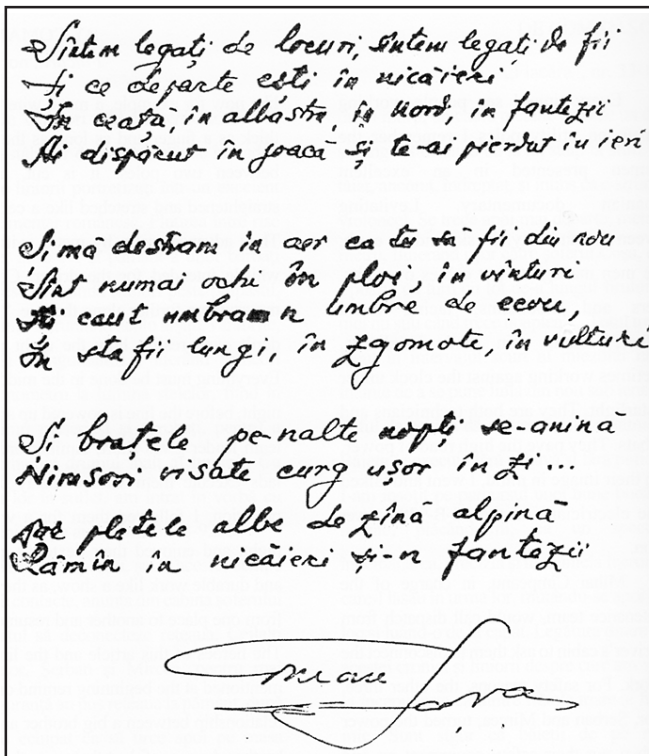 Sîntem legați de locuri, sîntem legați de fii
Și ce departe ești în nicăieri
În ceață, în albastru, în nord, în fantezii
Ai dispărut în joacă și te-ai pierdut în ieri
Și mă destram in aer ca tu să fii din nou
Sînt numai ochi în ploi, în vînturi
Îți caut umbra-n umbre de ecou,
În stafii lungi, în zgomote, în vulturi
Și brațele pe-nalte nopți se-anină
Ninsori visate curg ușor în zi...
Iar pletele albe de zînă alpină
Rămîn în nicăieri și-n fantezii